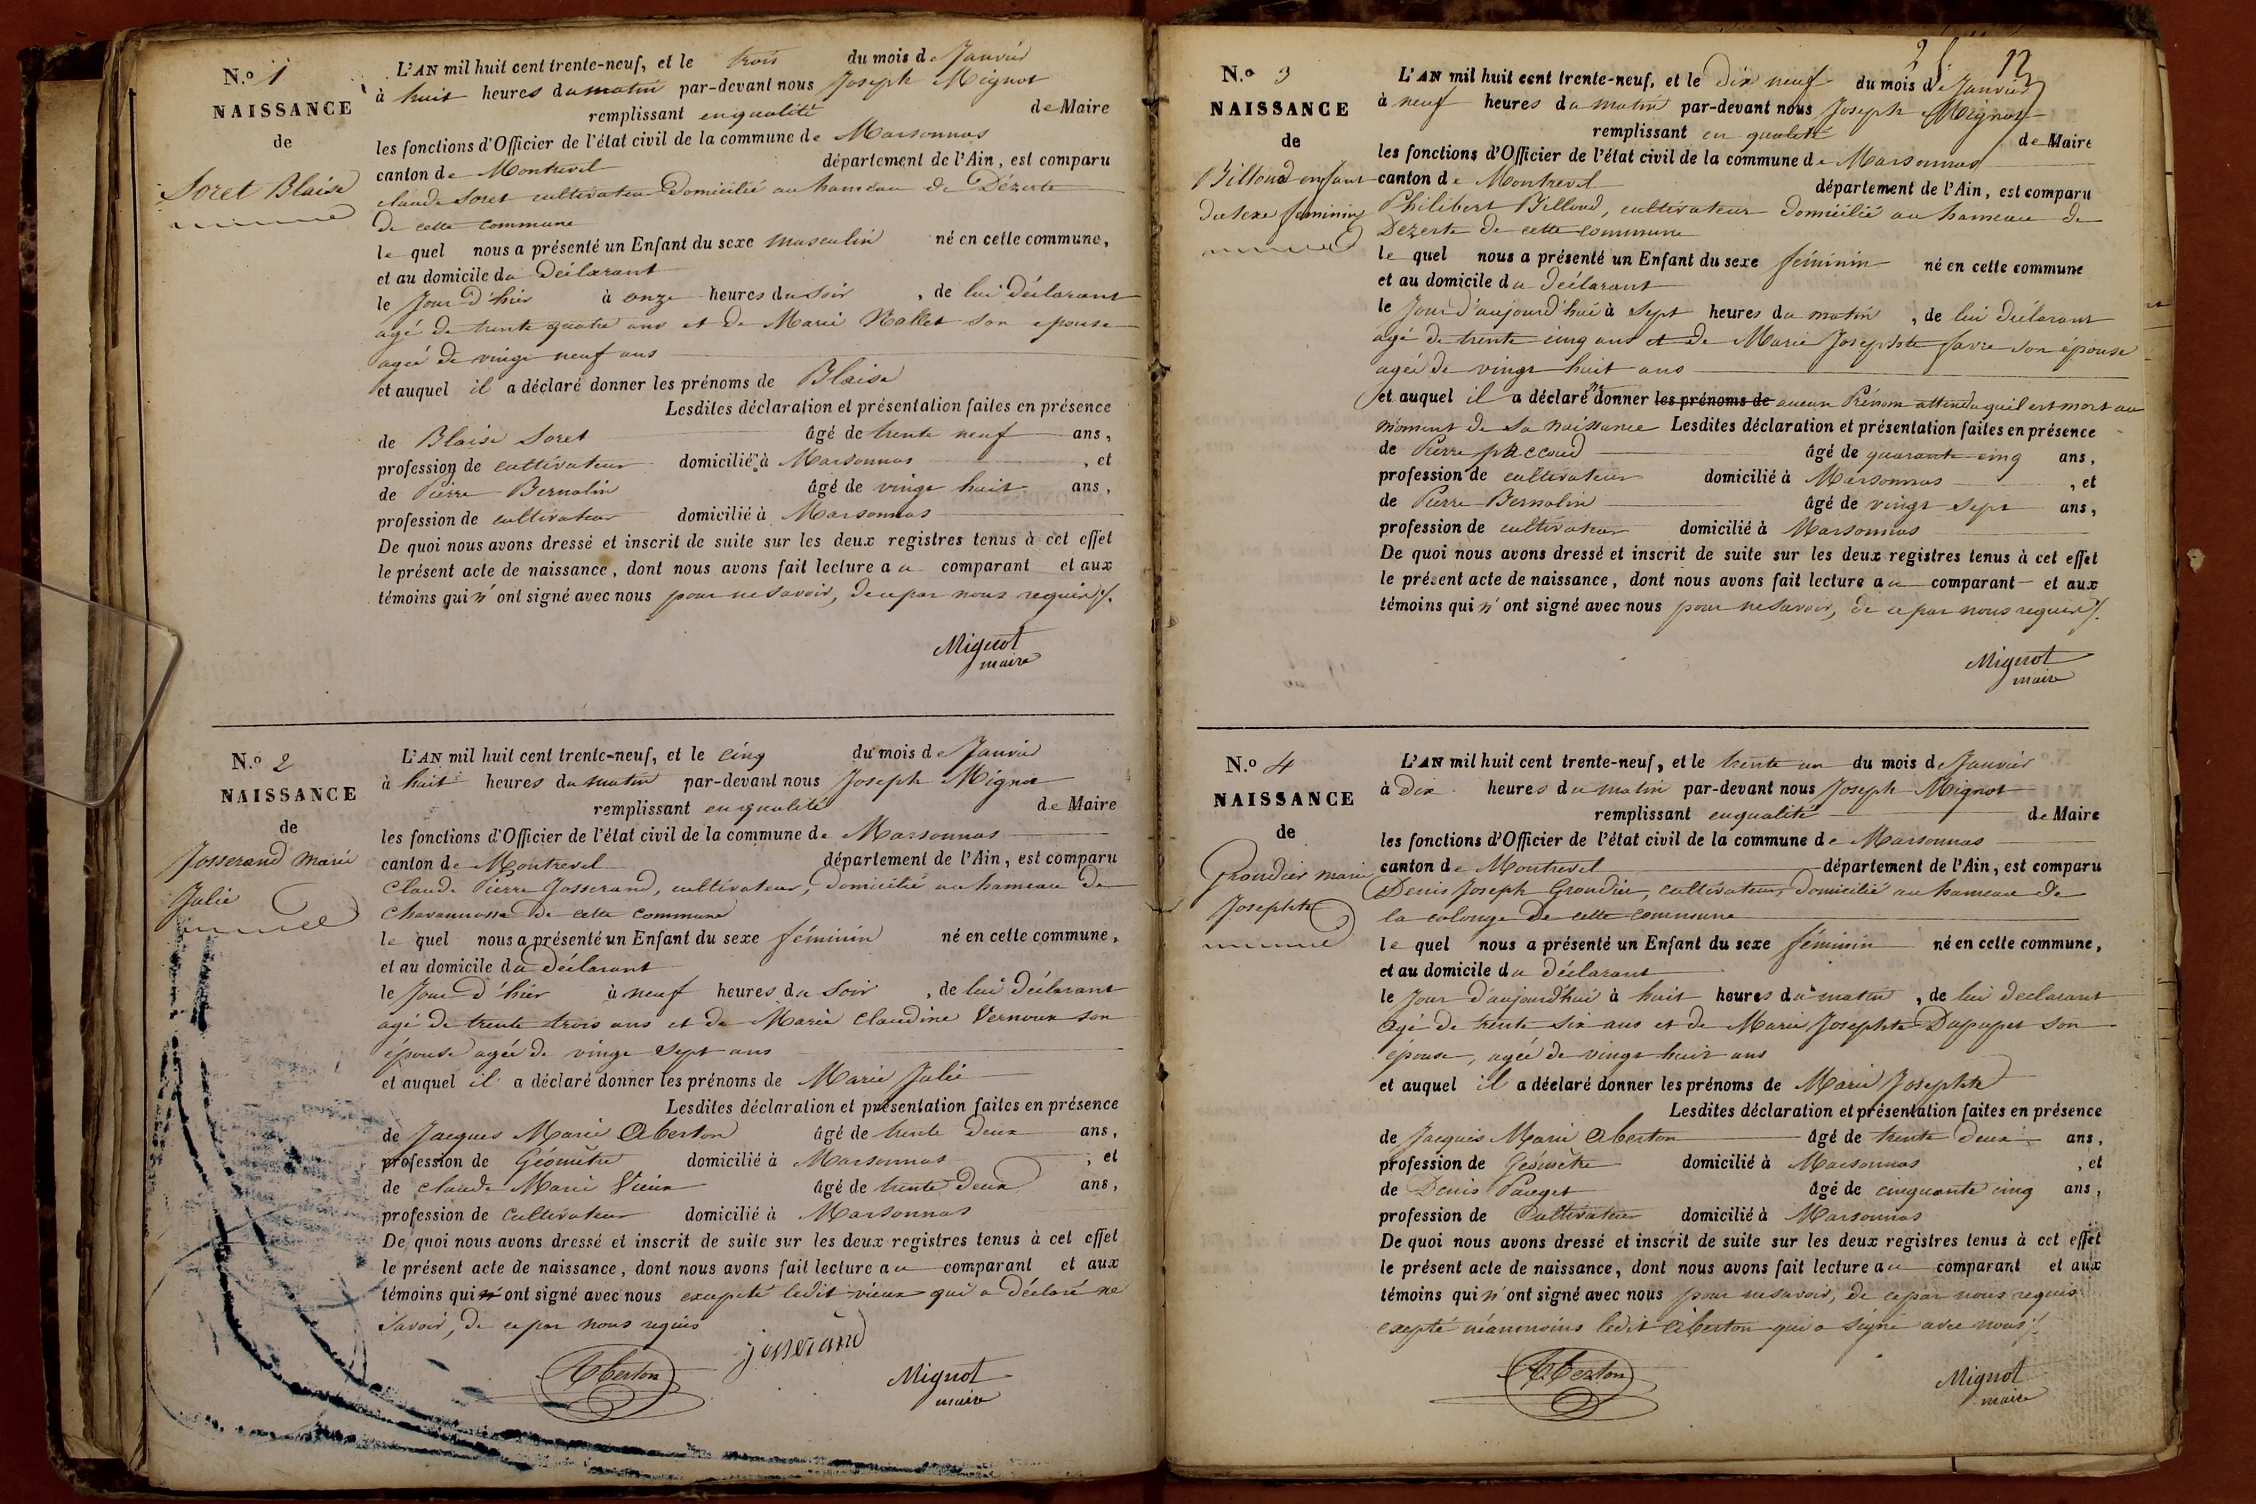 N.º 1
NAISSANCE
de
Soret Blaise
L'AN mil huit cent trente-neuf, et le trois du mois de Janvier
à huit heures du matin par-devant nous Joseph Mignot
remplissant en qualité de Maire
les fonctions d'Officier de l'état civil de la commune de Marsonnas
canton de Montrevel département de l'Ain, est comparu
claude Soret cultivateur domicilié au hameau de Dézerte
de cette commune
le quel nous a présenté un Enfant du sexe masculin né en cette commune,
et au domicile du déclarant
le Jour d'hier à onze heures du soir, de lui déclarant
agé de trente quatre ans et de Marie Rallet son epouse
agée de vingt neuf ans
et auquel il a déclaré donner les prénoms de Blaise
Lesdites déclaration et présentation faites en présence
de Blaise Soret âgé de trente neuf ans,
profession de cultivateur domicilié à Marsonnas, et
de Pierre Bernolin âgé de vingt huit ans,
profession de cultivateur domicilié à Marsonnas
De quoi nous avons dressé et inscrit de suite sur les deux registres tenus à cet effet
le présent acte de naissance, dont nous avons fait lecture au comparant et aux
témoins qui n'ont signé avec nous pour ne savoir, de ce par nous requis %.
Mignot
maire
N.º 2
NAISSANCE
de
Josserand marie
Julie
L'AN mil huit cent trente-neuf, et le cinq du mois de Janvier
à huit heures du matin par-devant nous Joseph Mignot
remplissant en qualité de Maire
les fonctions d'Officier de l'état civil de la commune de Marsonnas
canton de Montrevel département de l'Ain, est comparu
Claude Pierre Josserand, cultivateur, domicilié au hameau de
Chavannosse de cette commune
le quel nous a présenté un Enfant du sexe féminin né en cette commune,
et au domicile du déclarant
le Jour d'hier à neuf heures du soir, de lui déclarant
agé de trente trois ans et de Marie Claudine Vernoux son
épouse agée de vingt sept ans
et auquel il a déclaré donner les prénoms de Marie Julie
Lesdites déclaration et présentation faites en présence
de Jacques Marie Aberton âgé de trente deux ans,
profession de Géomètre domicilié à Marsonnas, et
de claude Marie Vieux âgé de trente deux ans,
profession de Cultivateur domicilié à Marsonnas
De quoi nous avons dressé et inscrit de suite sur les deux registres tenus à cet effet
le présent acte de naissance, dont nous avons fait lecture au comparant et aux
témoins qui n'ont signé avec nous excepté ledit vieux qui a déclaré ne
savoir, de ce par nous requis
Aberton josserand Mignot
maire
N.º 3
NAISSANCE
de
Billoud enfant
du sexe féminin
L'AN mil huit cent trente-neuf, et le dix neuf du mois de Janvier
à neuf heures du matin par-devant nous Joseph Mignot
remplissant en qualité de Maire
les fonctions d'Officier de l'état civil de la commune de Marsonnas
canton de Montrevel département de l'Ain, est comparu
Philibert Billoud, cultivateur domicilié au hameau de
Dezerte de cette commune
le quel nous a présenté un Enfant du sexe féminin né en cette commune
et au domicile du déclarant
le Jour d'aujourd'hui à sept heures du matin, de lui déclarant
agé de trente cinq ans et de Marie Josephte favre son épouse
agée de vingt huit ans
et auquel il a déclaré ne donner les prénoms de aucun Prénom attendu quil est mort au
moment de sa naissance Lesdites déclaration et présentation faites en présence
de Pierre paccoud âgé de quarante cinq ans,
profession de cultivateur domicilié à Marsonnas, et
de Pierre Bernolin âgé de vingt sept ans,
profession de cultivateur domicilié à Marsonnas
De quoi nous avons dressé et inscrit de suite sur les deux registres tenus à cet effet
le présent acte de naissance, dont nous avons fait lecture au comparant et aux
témoins qui n'ont signé avec nous pour ne savoir, de ce par nous requis %.
Mignot
maire
N.º 4
NAISSANCE
de
Grondier marie
Josephte
L'AN mil huit cent trente-neuf, et le trente un du mois de Janvier
à dix heures du matin par-devant nous Joseph Mignot
remplissant en qualité de Maire
les fonctions d'Officier de l'état civil de la commune de Marsonnas
canton de Montrevel département de l'Ain, est comparu
Denis Joseph Grondier, cultivateur, domicilié au hameau de
la colonge de cette commune
le quel nous a présenté un Enfant du sexe féminin né en cette commune,
et au domicile du déclarant
le Jour d'aujourd'hui à huit heures du matin, de lui declarant
agé de trente six ans et de Marie Josephte Dupupet son
épouse, agée de vingt huit ans
et auquel il a déclaré donner les prénoms de Marie Josephte
Lesdites déclaration et présentation faites en présence
de Jacques Marie Aberton âgé de trente deux ans,
profession de Géomètre domicilié à Marsonnas, et
de Denis Pauget âgé de cinquante cinq ans,
profession de Cultivateur domicilié à Marsonnas
De quoi nous avons dressé et inscrit de suite sur les deux registres tenus à cet effet
le présent acte de naissance, dont nous avons fait lecture au comparant et aux
témoins qui n'ont signé avec nous pour ne savoir, de ce par nous requis
excepté néanmoins ledit Aberton qui a signé avec nous %.
Aberton Mignot
maire